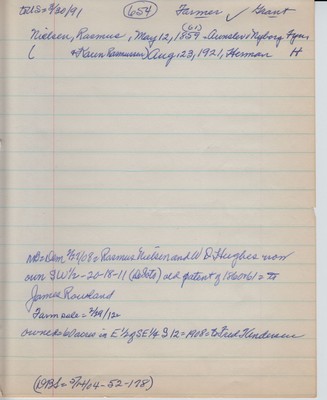 to U.S. = 9/30/91 654 Farmer ✓ Grant
(61)
Nielsen, Rasmus, May 12, 1859 - Aunslev, Nyborg Fyns
( + Karen Rasmussen) Aug. 23, 1921, Herman H
NB = Dem 2/27/08 = Rasmus Nielsen and W D Hughes now
own SW 1/2 - 20-18-11 old patent of 1860+61 = to
James Rowland
Farm sale = 2/29/12
owned 60 acres in E 1/2 of SE 1/4 S 12 = 1908 = to Fred Henderson
(1913L = 5/24/04 - 52-178)